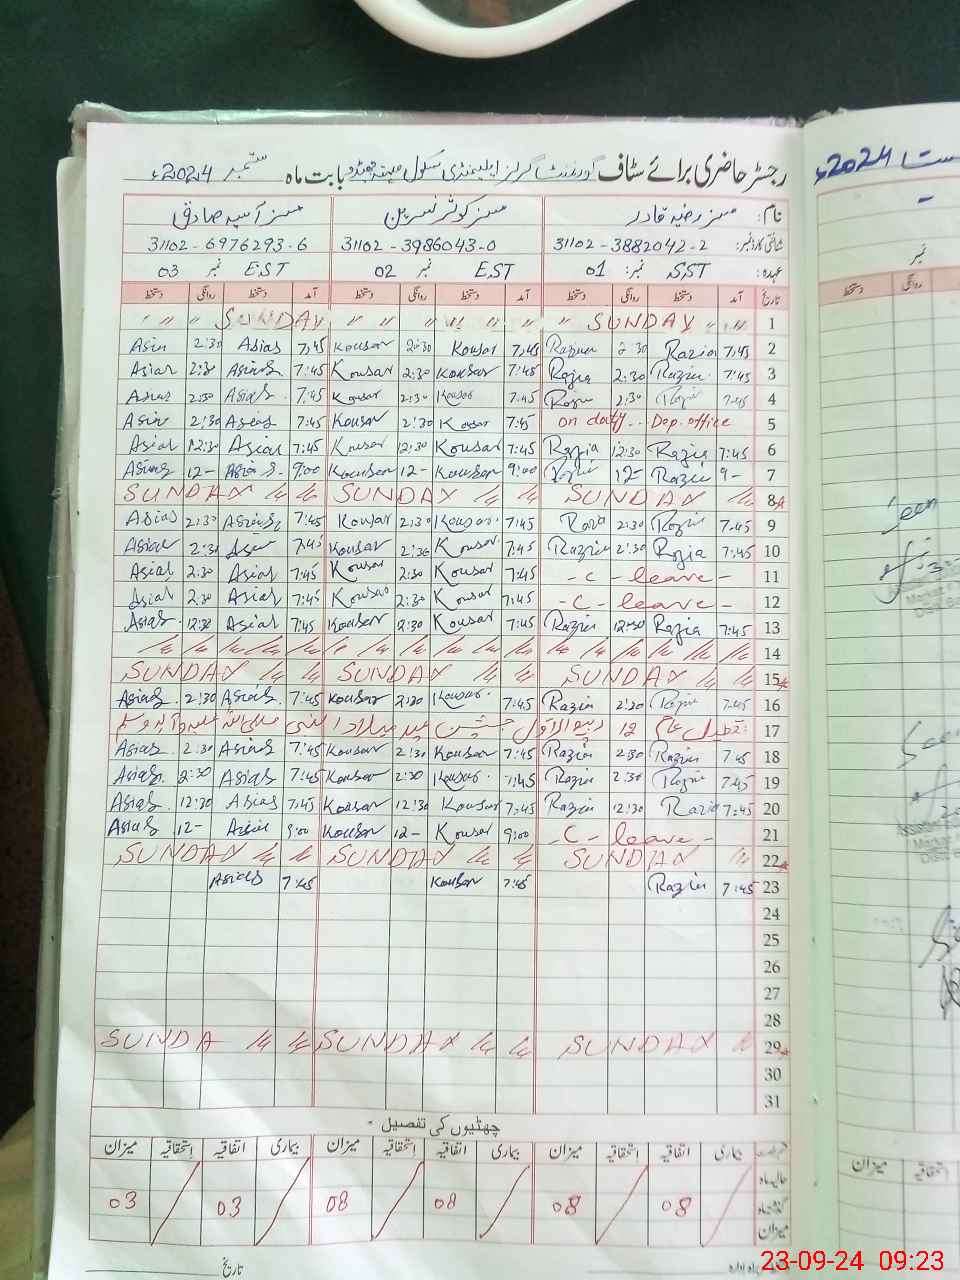 رجسٹر حاضری برائے سٹاف گورنمنٹ گرلز ایلیمنٹری سکول بابت ماہ ستمبر 2024ء
نام: مسز رضیہ قادر مسز کوثر نسرین مسز آسیہ صادق
شناختی کارڈ نمبر: 31102-3882042-2 31102-3986043-0 31102-6976293-6
عہدہ: SST نمبر: 01 EST نمبر 02 EST نمبر 03
تاریخ آمد دستخط روانگی دستخط آمد دستخط روانگی دستخط آمد دستخط روانگی دستخط
1 SUNDAY " " " " " " " SUNDAY " "
2 7:45 Razia 2:30 7:45 Kousar 2:30 Kousar 7:45 Asias 2:30
3 7:45 Razia 2:30 Razia 7:45 Kousar 2:30 Kousar 7:45 Asias 2:30 Asias
4 7:45 2:30 7:45 Kousar 2:30 Kousar 7:45 Asias 2:30 Asias
5 on duty -- Dep. office 7:45 Kousar 2:30 Kousar 7:45 Asias 2:30
6 7:45 Razia 12:30 Razia 7:45 Kousar 12:30 Kousar 7:45 Asias 12:30 Asias
7 9- Razia 12- 9:00 Kousar 12- Kousar 9:00 Asias 12- Asias
8 SUNDAY SUNDAY SUNDAY
9 7:45 Razia 2:30 Razia 7:45 Kousar 2:30 Kousar 7:45 Asias 2:30 Asias
10 7:45 Razia 2:30 Razia 7:45 Kousar 2:30 Kousar 7:45 2:30 Asias
11 - C - leave - 7:45 Kousar 2:30 Kousar 7:45 Asias 2:30 Asias
12 - C - leave - 7:45 Kousar 2:30 Kousar 7:45 Asias 2:30 Asias
13 7:45 Razia 12:30 Razia 7:45 Kousar 2:30 Kousar 7:45 Asias 12:30 Asias
14
15 SUNDAY SUNDAY SUNDAY
16 7:45 2:30 Razia 7:45 Kousar 2:30 Kousar 7:45 Asias 2:30 Asias
17 تعطیل عام 12 ربیع الاول جشن عید میلاد النبی صلی اللہ علیہ وآلہ وسلم
18 7:45 Razia 2:30 Razia 7:45 Kousar 2:30 Kousar 7:45 Asias 2:30 Asias
19 7:45 Razia 2:30 Razia 7:45 Kousar 2:30 Kousar 7:45 Asias 2:30 Asias
20 7:45 Razia 12:30 Razia 7:45 Kousar 12:30 Kousar 7:45 Asias 12:30 Asias
21 C - leave - 9:00 Kousar 12- Kousar 9:00 Asias 12- Asias
22 SUNDAY SUNDAY SUNDAY
23 7:45 Razia 7:45 Kousar 7:45 Asias
24
25
26
27
28
29 SUNDAY SUNDAY SUNDAY
30
31
چھٹیوں کی تفصیل
بیماری اتفاقیہ استحقاقیہ میزان بیماری اتفاقیہ استحقاقیہ میزان بیماری اتفاقیہ استحقاقیہ میزان
حالیہ ماہ
گذشتہ ماہ 08 08 08 08 03 03
میزان
تاریخ
2024ء
نمبر
روانگی دستخط
Seen
استحقاقیہ میزان
23-09-24 09:23